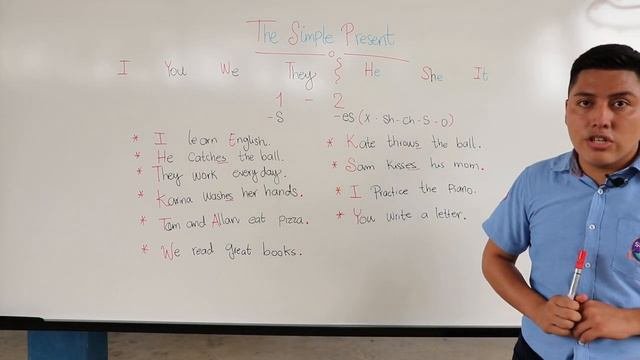 The Simple Present
I You We They He She It
1 - 2
-s -es (x - sh - ch - s - o)
* I learn English.
* He catches the ball.
* They work everyday.
* Karina washes her hands.
* Tom and Allan eat pizza.
* We read great books.
* Kate throws the ball.
* Sam kisses his mom.
* I Practice the Piano.
* You write a letter.